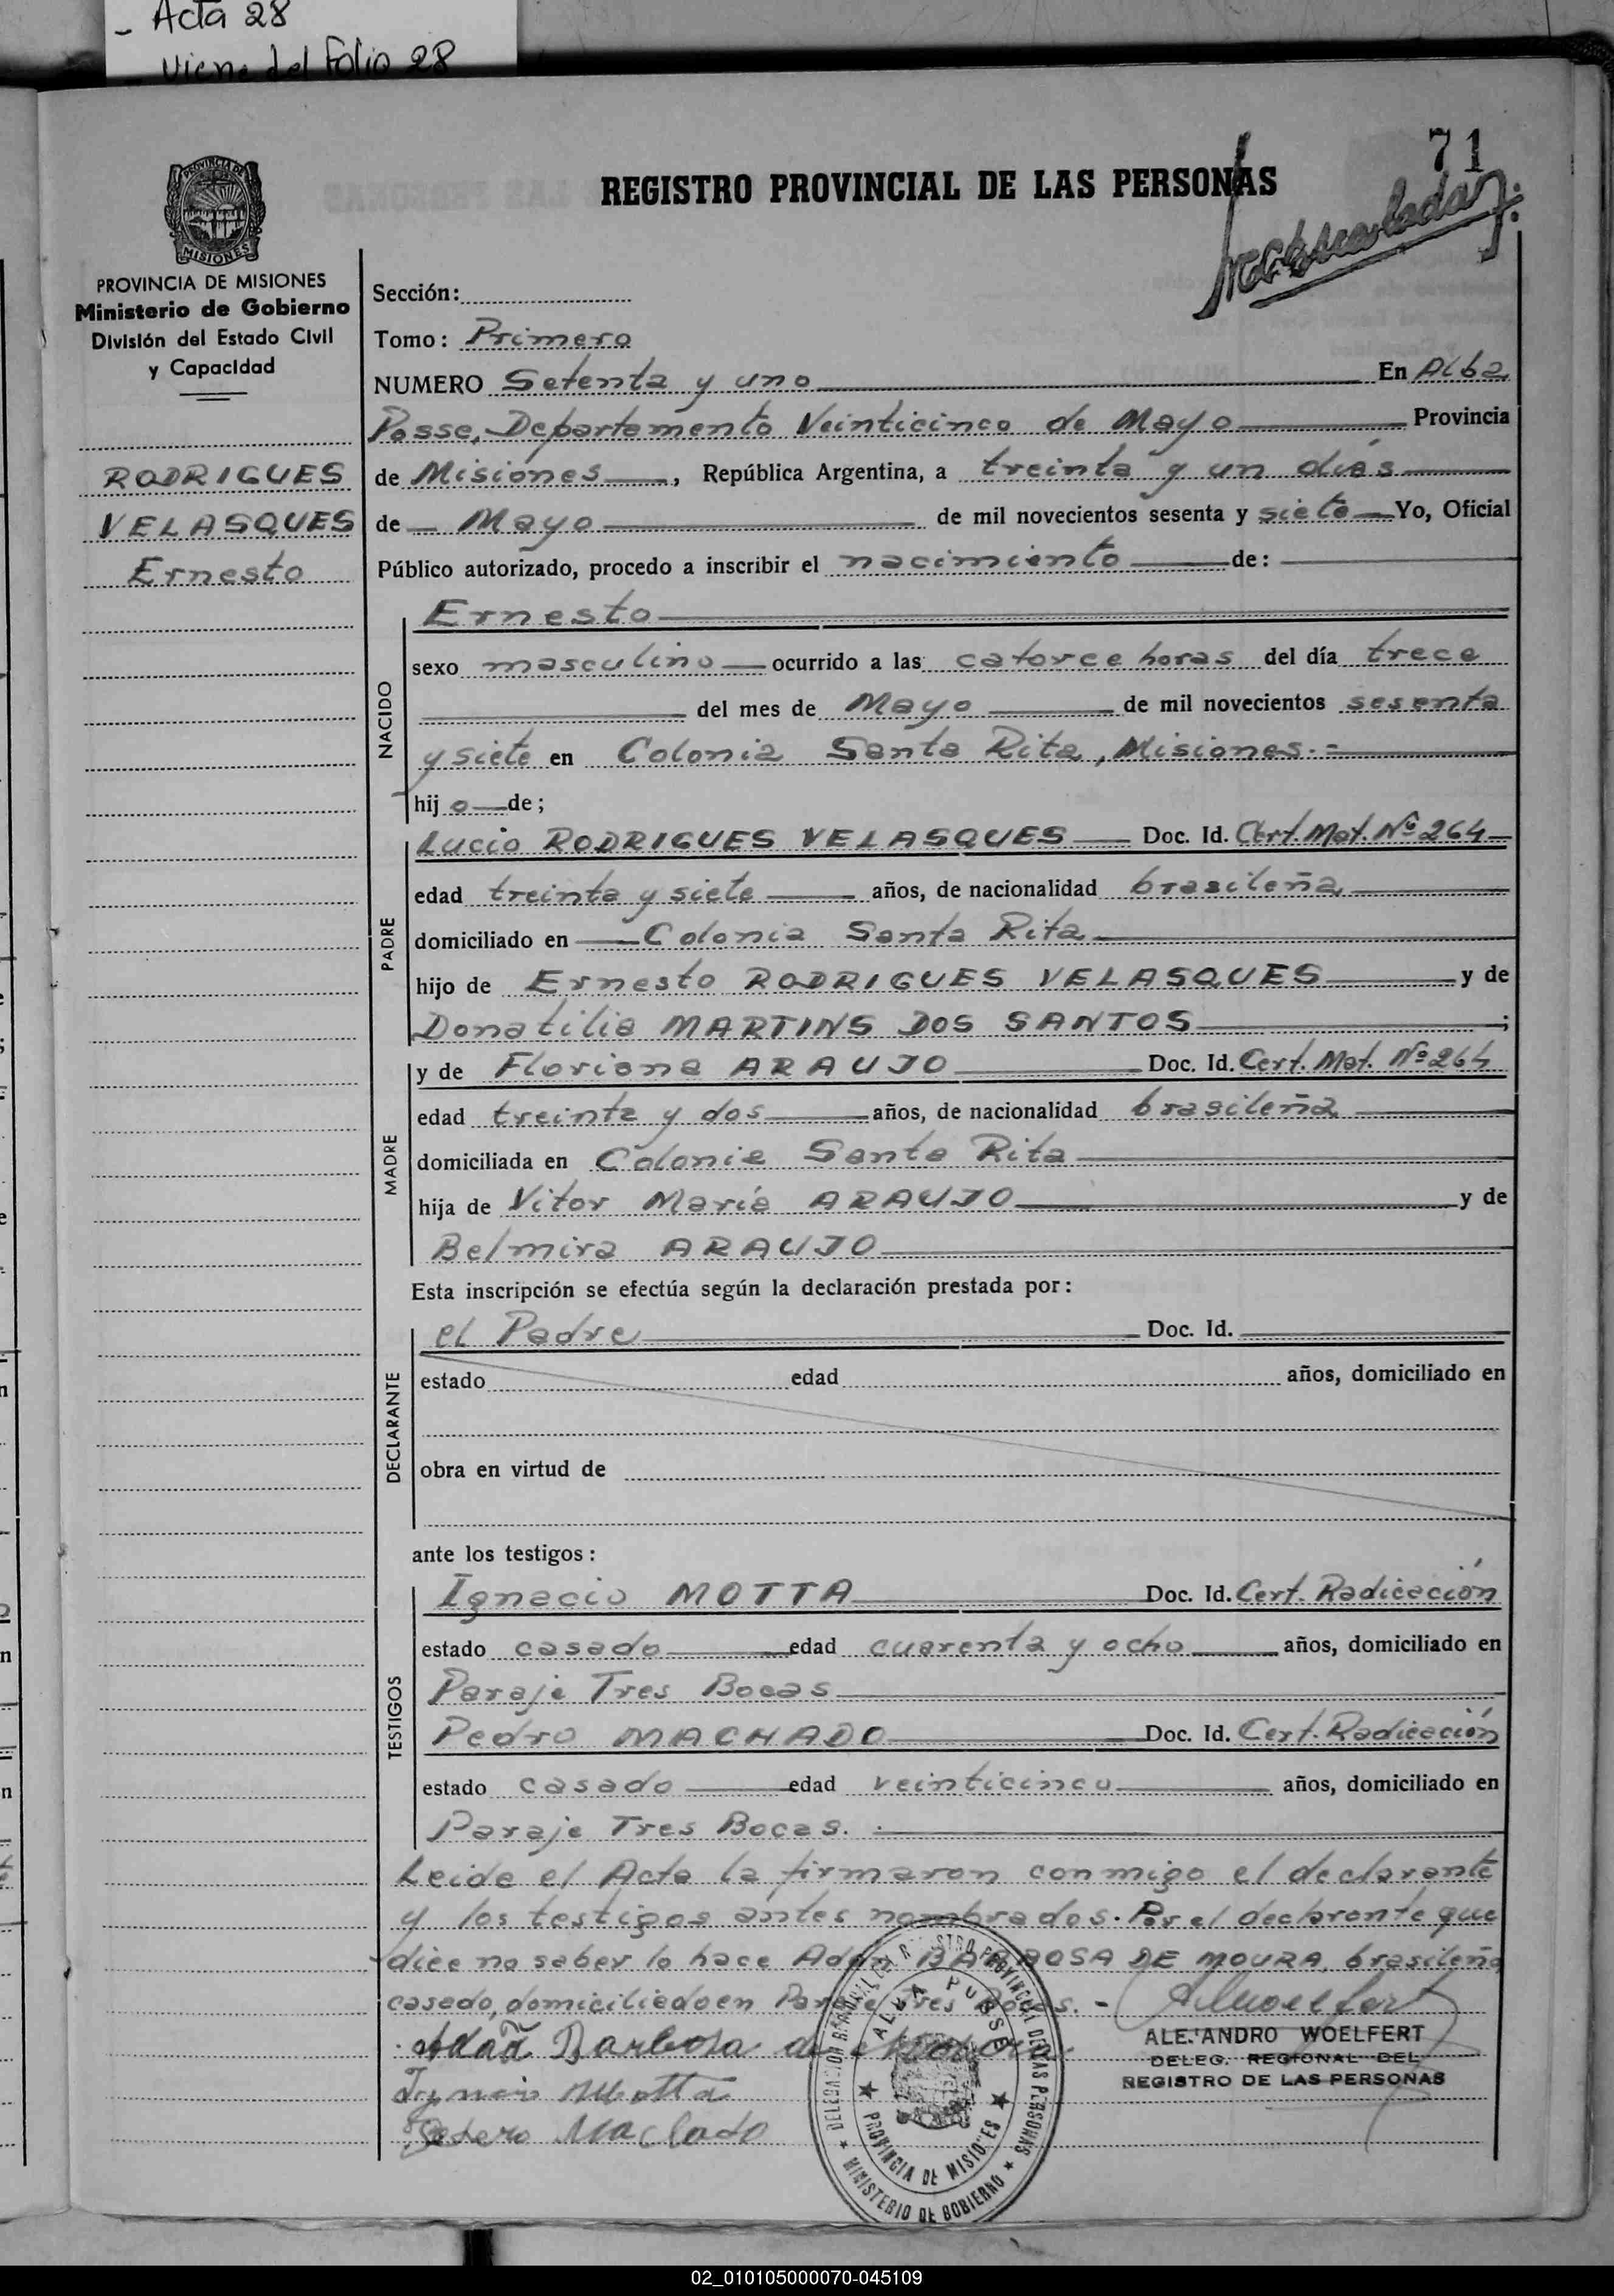 - Acta 28
Viene del Folio 28
71
REGISTRO PROVINCIAL DE LAS PERSONAS
PROVINCIA DE
MISIONES
PROVINCIA DE MISIONES
Ministerio de Gobierno
División del Estado Civil
y Capacidad
RODRIGUES
VELASQUES
Ernesto
Sección:
Tomo: Primero
NUMERO Setenta y uno En Alba
Posse, Departamento Veinticinco de Mayo Provincia
de Misiones, República Argentina, a treinta y un días
de Mayo de mil novecientos sesenta y siete Yo, Oficial
Público autorizado, procedo a inscribir el nacimiento de:
NACIDO
Ernesto
sexo masculino ocurrido a las catorce horas del día trece
del mes de Mayo de mil novecientos sesenta
y siete en Colonia Santa Rita, Misiones.=
hijo de;
PADRE
Lucio RODRIGUES VELASQUES Doc. Id. Cert. Mat. Nº 264
edad treinta y siete años, de nacionalidad brasileña
domiciliado en Colonia Santa Rita
hijo de Ernesto RODRIGUES VELASQUES y de
Donatilia MARTINS DOS SANTOS ;
MADRE
y de Floriana ARAUJO Doc. Id. Cert. Mat. Nº 264
edad treinta y dos años, de nacionalidad brasileña
domiciliada en Colonia Santa Rita
hija de Vitor María ARAUJO y de
Belmira ARAUJO
Esta inscripción se efectúa según la declaración prestada por:
DECLARANTE
el Padre Doc. Id.
estado edad años, domiciliado en
obra en virtud de
ante los testigos:
TESTIGOS
Ignacio MOTTA Doc. Id. Cert. Radicación
estado casado edad cuarenta y ocho años, domiciliado en
Paraje Tres Bocas
Pedro MACHADO Doc. Id. Cert. Radicación
estado casado edad veinticinco años, domiciliado en
Paraje Tres Bocas.
Leida el Acta la firmaron conmigo el declarante
y los testigos antes nombrados. Por el declarante que
dice no saber lo hace Adán BARBOSA DE MOURA, brasileño
casado, domiciliado en Paraje Tres Bocas. -
Adaã Barbosa de Moura
Ignacio Motta
Pedero Machado
ALEJANDRO WOELFERT
DELEG. REGIONAL DEL
REGISTRO DE LAS PERSONAS
ALBA POSSE
PROVINCIA DE MISIONES
MINISTERIO DE GOBIERNO
02_010105000070-045109